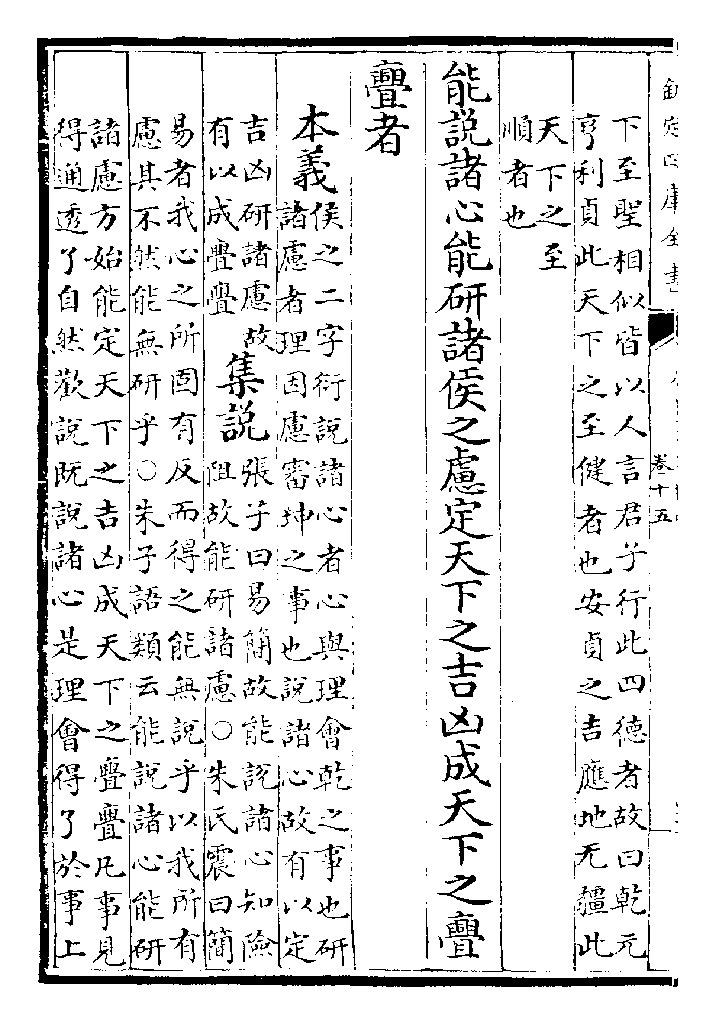 欽定四庫全書
卷十五
下至聖相似皆以人言君子行此四德者故曰乾元
亨利貞此天下之至健者也安貞之吉應地无疆此
天下之至
順者也
能説諸心能研諸侯之慮定天下之吉凶成天下之亹
亹者
本義
侯之二字衍説諸心者心與理會乾之事也研
諸慮者理因慮審坤之事也説諸心故有以定
吉凶研諸慮故
有以成亹亹
集説
張子曰易簡故能説諸心知險
阻故能研諸慮○朱氏震曰簡
易者我心之所固有反而得之能無説乎以我所有
慮其不然能無研乎○朱子語類云能説諸心能研
諸慮方始能定天下之吉凶成天下之亹亹凡事見
得通透了自然歡説既説諸心是理會得了於事上